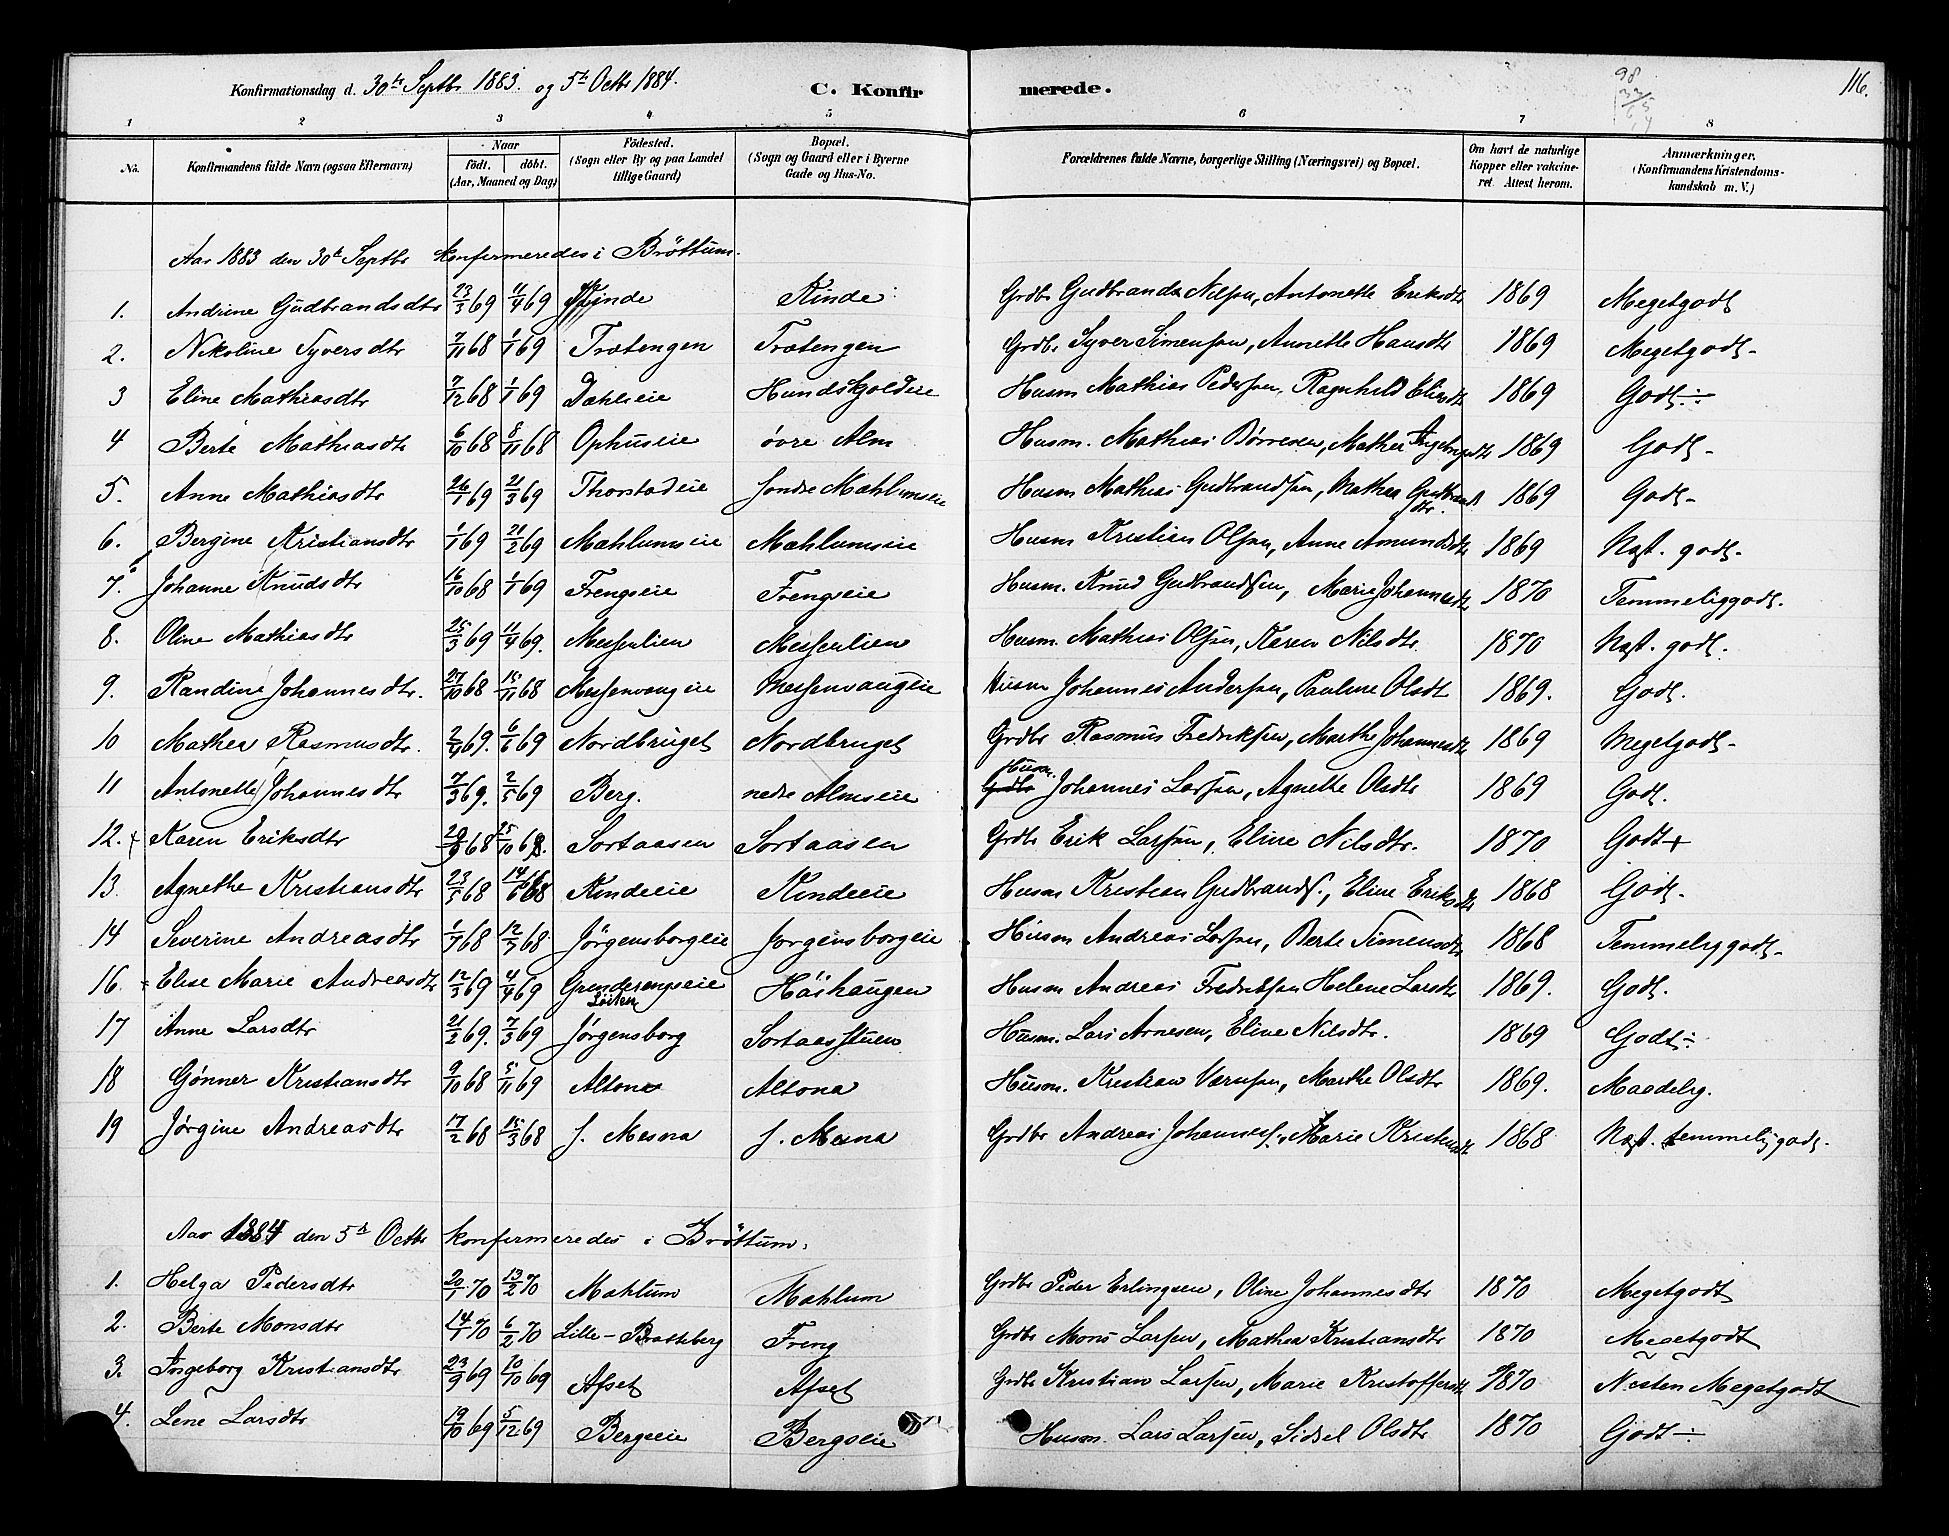 Konfirmationsdag d. 30te Septbr 1883. og 5te Octbr 1884. C. Konfirmerede. 116.
98
1 2 3 4 5 6 7 8
No. Konfirmandens fulde Navn (ogsaa Efternavn) Naar födt. döbt. (Aar, Maaned og Dag) Födested. (Sogn eller By og paa Landet tillige Gaard) Bopæl. (Sogn og Gaard eller i Byerne Gade og Hus-No. Forældrenes fulde Navne, borgerlige Stilling (Næringsvei) og Bopæl. Om havt de naturlige Kopper eller vakcineret. Attest herom. Anmærkninger. (Konfirmandens Kristendomskundskab m. V.)
Aar 1883 den 30te Septbr konfirmeredes i Bröttum.
1. Andrine Gudbrandsdtr 23/3 69 11/4 69 Kinde Kinde Grdbr Gudbrand Nilsen, Antonette Eriksdtr 1869 Megetgodt
2. Nikoline Syversdtr 7/11 68 1/1 69 Trætengen Trætengen Grdbr Syver Simensen, Annette Hansdtr 1869 Megetgodt-
3 Eline Mathiasdtr 7/12 68 1/1 69 Dahlseie Hundskjoldeie Husm Mathias Pedersen, Ragnhild Eliasdtr 1869 Godt÷
4 Berte Mathiasdtr 6/10 68 8/11 68 Ophuseie övre Alm Husm. Mathias Börresen, Mathea Ingebrigtsdtr 1869 Godt-
5. Anne Mathiasdtr 26/1 69 21/3 69 Thorstadeie söndre Mahlumseie Husm Mathias Gudbrandsen, Mathea Gudbrandsdtr 1869 Godt-
6. Bergine Kristiansdtr 1/1 69 21/2 69 Mahlumseie Mahlumseie Husm Kristian Olsen, Anne Amundsdtr 1869 Næst. godt-
7. Johanne Knudsdtr 16/10 68 1/1 69 Frengseie Frengseie Husm. Knud Gudbrandsen, Marie Johannesdtr 1870 Temmeliggodt.
8. Oline Mathiasdtr 25/3 69 11/4 69. Messenlien Messenlien Husm Mathias Olsen, Karen Nilsdtr. 1870 Næst. godt.
9. Randine Johannesdtr. 27/10 68 15/11 68 Messenvangeie Messenvangeie Husm Johannes Andersen, Pauline Olsdt 1869. Godt.
10 Mathea Rasmusdtr. 2/4 69. 6/6 69 Nordbruget Nordbruget Grdbr Rasmus Fredriksen, Marthe Johannesdtr 1869 Megetgodt-
11 Antonette Johannesdtr 7/3 69. 2/5 69 Berg. nedre Almseie Grdbr Husm. Johannes Larsen, Agnethe Olsdtr 1869 Godt.
12. + Karen Eriksdtr 20/9 68 25/10 68. Sortaasen Sortaasen Grdbr Erik Larsen, Eline Nilsdtr. 1870 Godt+
13. Agnethe Kristiansdtr 23/5 68 14/6 68 Kindeeie Kindeeie Husm Kristian Gudbrands., Eline Eriksdtr 1868 Godt-
14 Severine Andreasdtr 1/7 68 12/7 68. Jörgensborgeie Jörgensborgeie Husm Andreas Larsen, Berte Simensdtr 1868 Temmeliggodt-
16. Elise Marie Andreasdtr 12/3 69 4/4 69 Grunderengseie Löiten Höihaugen Husm Andreas Fredriksen Helene Larsdtr 1869. Godt.
17 Anne Larsdtr 21/2 69. 7/3 69 Jörgensborg Sortaasstuen Husm. Lars Arnesen, Eline Nilsdtr. 1869 Godt÷
18 Gönner Kristiansdtr 9/10 68 5/11 69 Altona Altona Husm. Kristian Værnsen, Marthe Olsdtr 1869. Maadelig.
19 Jörgine Andreasdtr 17/2 68 15/3 68 s. Mesna s. Mesna Grdbr Andreas Johannes., Marie Kristensdtr 1868 Næst. temmeliggodt.
Aar 1884 den 5te Octbr konfirmeredes i Bröttum.
1. Helga Pedersdtr 20/1 70 13/2 70 Mahlum Mahlum Grdbr Peder Erlingsen, Oline Johannesdtr 1870 Megetgodt
2. Berte Monsdtr 14/1 70 6/2 70 Lille-Bratteberg Freng Grdbr Mons Larsen, Mathea Kristiansdtr 1870 Megetgodt
3. Ingeborg Kristiansdtr 23/9 69 10/10 69 Afset Afset Grdbr Kristian Larsen, Marie Kristoffersdtr 1870 Næsten Megetgodt
4. Lene Larsdtr 19/10 69 5/12 69 Bergseie Bergseie Husm. Lars Larsen, Sidsel Olsdtr 1870 Godt÷